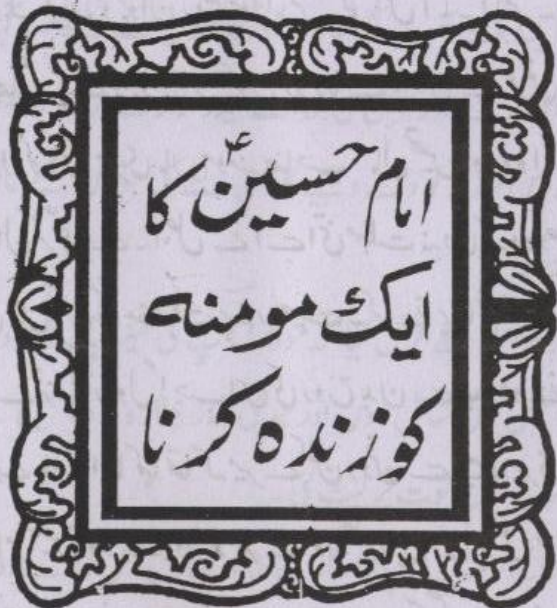 امام حسینؑ کا
ایک مومنہ
کو زندہ کرنا